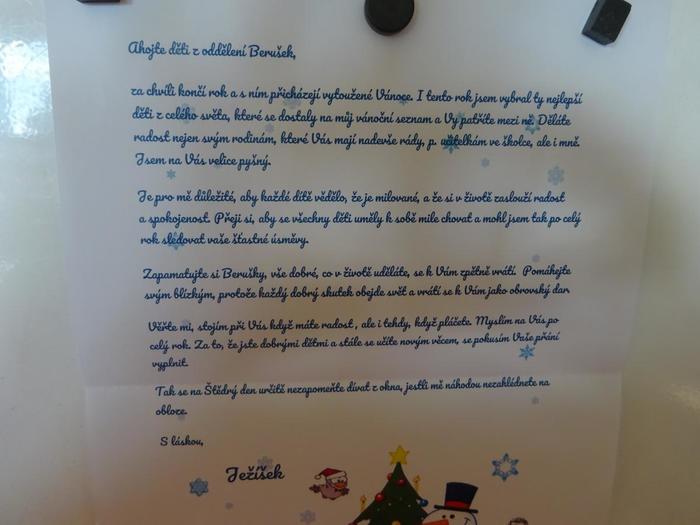 Ahojte děti z oddělení Berušek,
za chvíli končí rok a s ním přicházejí vytoužené Vánoce. I tento rok jsem vybral ty nejlepší
děti z celého světa, které se dostaly na můj vánoční seznam a Vy patříte mezi ně. Děláte
radost nejen svým rodinám, které Vás mají nadevše rády, p. učitelkám ve školce, ale i mně.
Jsem na Vás velice pyšný.
Je pro mě důležité, aby každé dítě vědělo, že je milované, a že si v životě zaslouží radost
a spokojenost. Přeji si, aby se všechny děti uměly k sobě mile chovat a mohl jsem tak po celý
rok sledovat vaše šťastné úsměvy.
Zapamatujte si Berušky, vše dobré, co v životě uděláte, se k Vám zpětně vrátí. Pomáhejte
svým blízkým, protože každý dobrý skutek obejde svět a vrátí se k Vám jako obrovský dar.
Věřte mi, stojím při Vás když máte radost , ale i tehdy, když pláčete. Myslím na Vás po
celý rok. Za to, že jste dobrými dětmi a stále se učíte novým věcem, se pokusím Vaše přání
vyplnit.
Tak se na Štědrý den určitě nezapomeňte dívat z okna, jestli mě náhodou nezahlédnete na
obloze.
S láskou,
Ježíšek